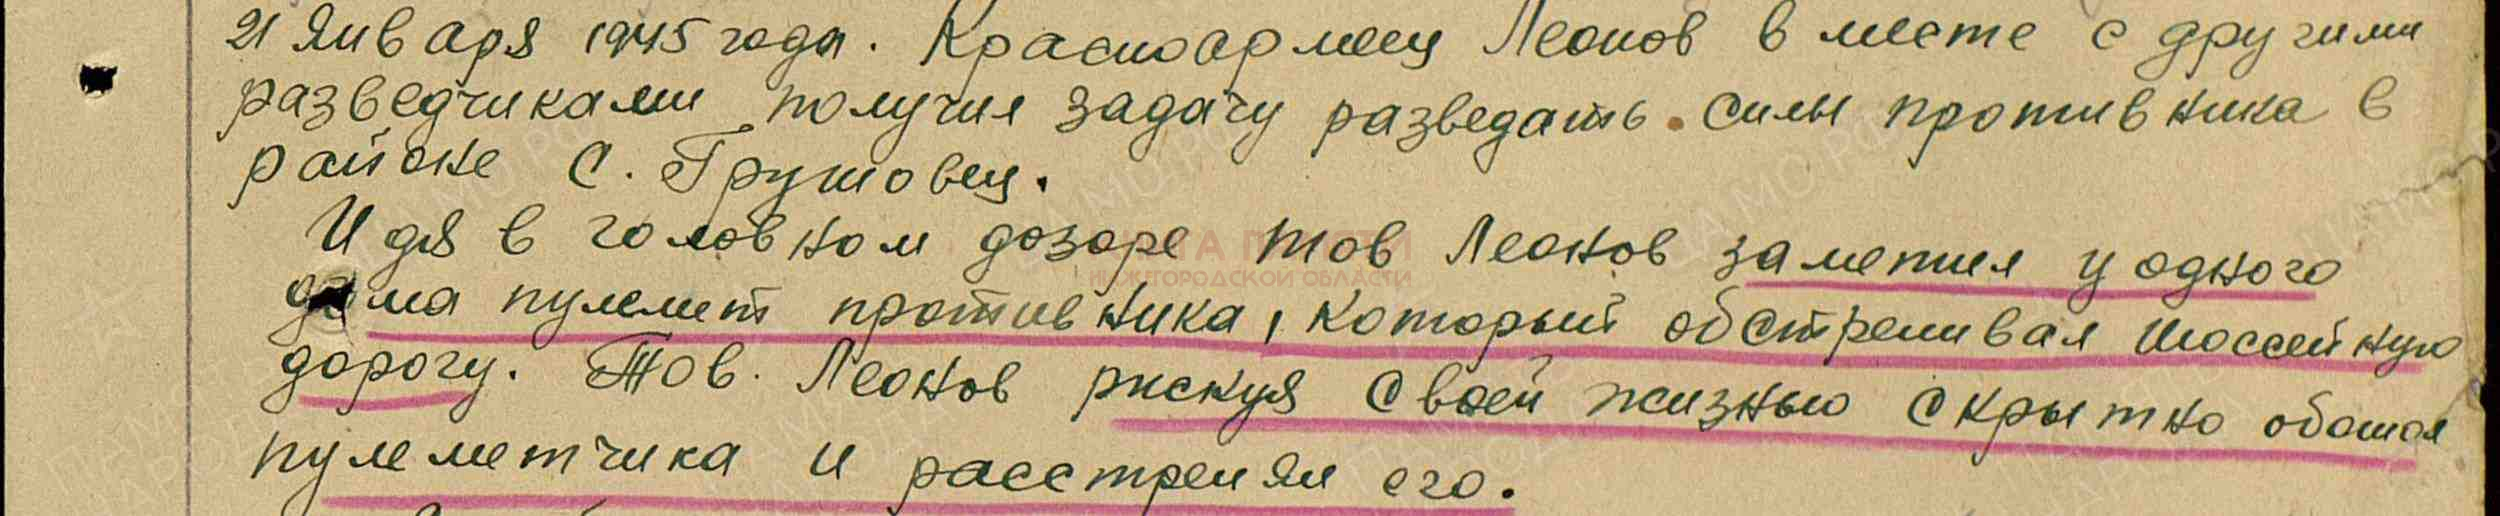 21 января 1945 года. Красноармеец Леонов в месте с другими
разведчиками получил задачу разведать силы противника в
районе с. Грушовец.
Идя в головном дозоре тов Леонов заметил у одного
дома пулемет противника, который обстреливал шоссейную
дорогу. Тов. Леонов рискуя своей жизнью скрытно обошол
пулеметчика и расстрелял его.